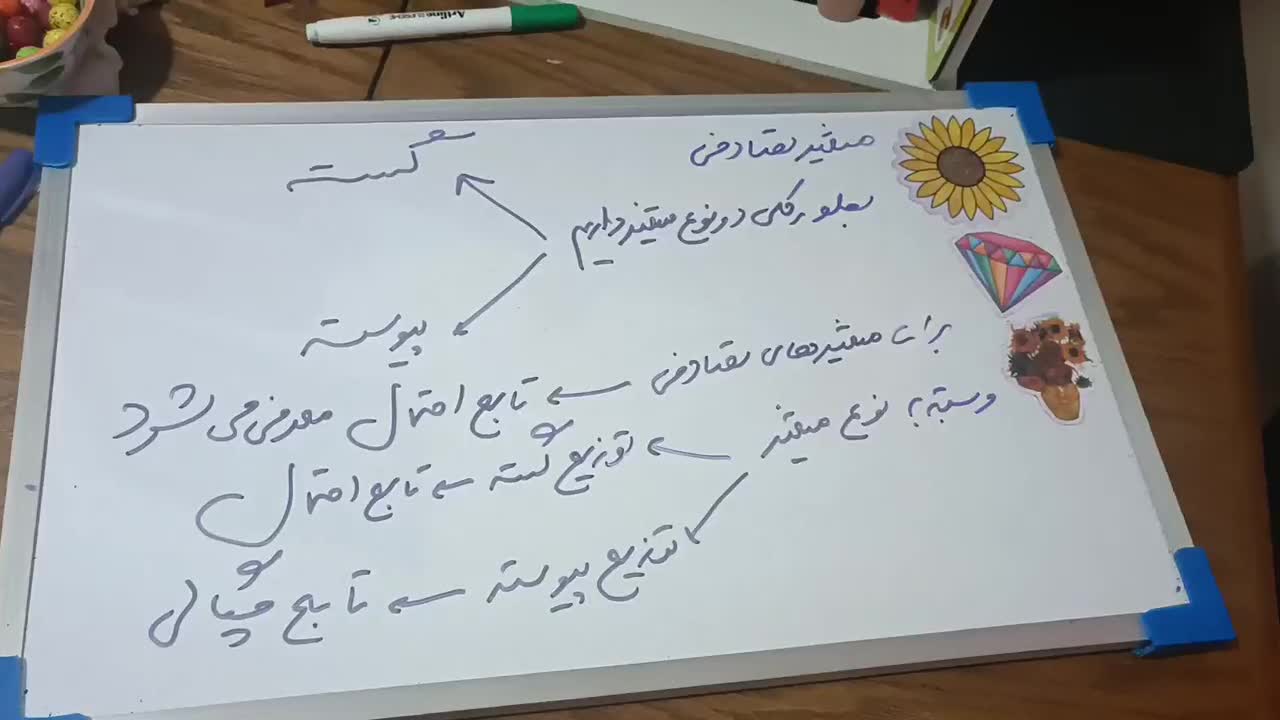 Artline
متغیر تصادفی
بطور کلی دو نوع متغیر داریم
گسسته
پیوسته
برای متغیرهای تصادفی ← تابع احتمال معرفی می شود
وسته به نوع متغیر
توزیع گسسته ← تابع احتمال
توزیع پیوسته ← تابع چگالی